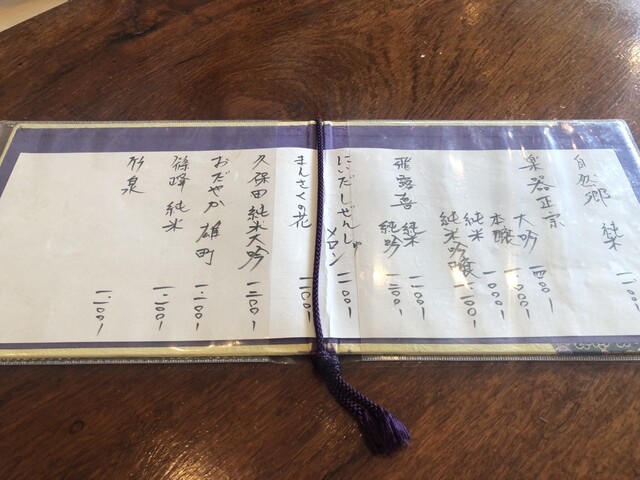 自然郷 純米 一二〇〇-
楽器正宗 大吟 一四〇〇-
本醸 一〇〇〇-
純米 一一〇〇-
純米吟醸
飛露喜 純米 一二〇〇-
純吟 一三〇〇-
にいだしぜんしゅ メロン 一二〇〇-
まんさくの花 一一〇〇-
久保田 純米大吟 一三〇〇-
おだやか 雄町 一二〇〇-
篠峰 純米 一一〇〇-
竹泉 一二〇〇-